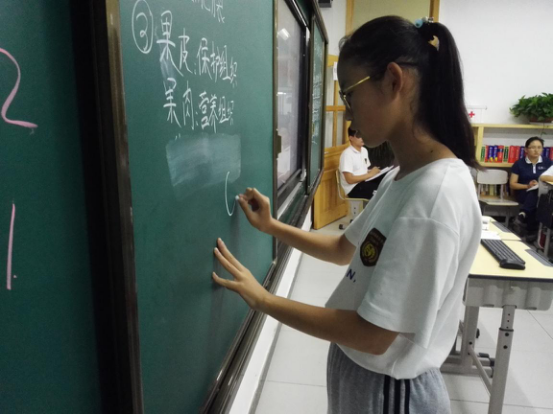 ②果皮、保护组织
果肉、营养组织
2
1
N.